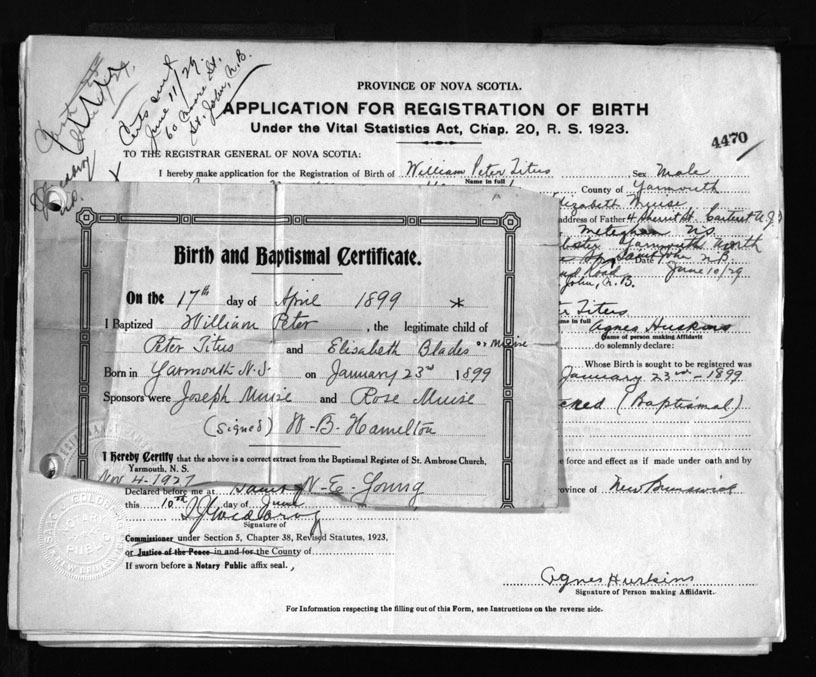 Certs sent
June 11/29.
60 Moore St.
St. John, N.B.
PROVINCE OF NOVA SCOTIA.
APPLICATION FOR REGISTRATION OF BIRTH
Under the Vital Statistics Act, Chap. 20, R. S. 1923.
4470
TO THE REGISTRAR GENERAL OF NOVA SCOTIA:
I hereby make application for the Registration of Birth of William Peter Titus Sex Male
Name in full
County of Yarmouth
Elizabeth Muise
address of Father 4 St. Carteret N.J.
Meteghan N.S.
Yarmouth North
Saint John N.B.
Date June 10/29
Road
John, N.B.
Titus
me in full Agnes Huskins
Name of person making Affidavit
do solemnly declare:
Whose Birth is sought to be registered was
January 23rd - 1899
(Baptismal)
e force and effect as if made under oath and by
ovince of New Brunswick
Birth and Baptismal Certificate.
On the 17th day of April 1899
I Baptized William Peter, the legitimate child of
Peter Titus and Elisabeth Blades or Muise
Born in Yarmouth N.S. on January 23rd 1899
Sponsors were Joseph Muise and Rose Muise
(Signed) W. B. Hamilton
I Hereby Certify that the above is a correct extract from the Baptismal Register of St. Ambrose Church,
Yarmouth, N. S.
Nov 4-1927 N. E. Young
Declared before me at Saint
this 10th day of June
Signature of
Commissioner under Section 5, Chapter 38, Revised Statutes, 1923,
or Justice of the Peace in and for the County of
If sworn before a Notary Public affix seal.
Agnes Huskins
Signature of Person making Affidavit.
For Information respecting the filling out of this Form, see Instructions on the reverse side.